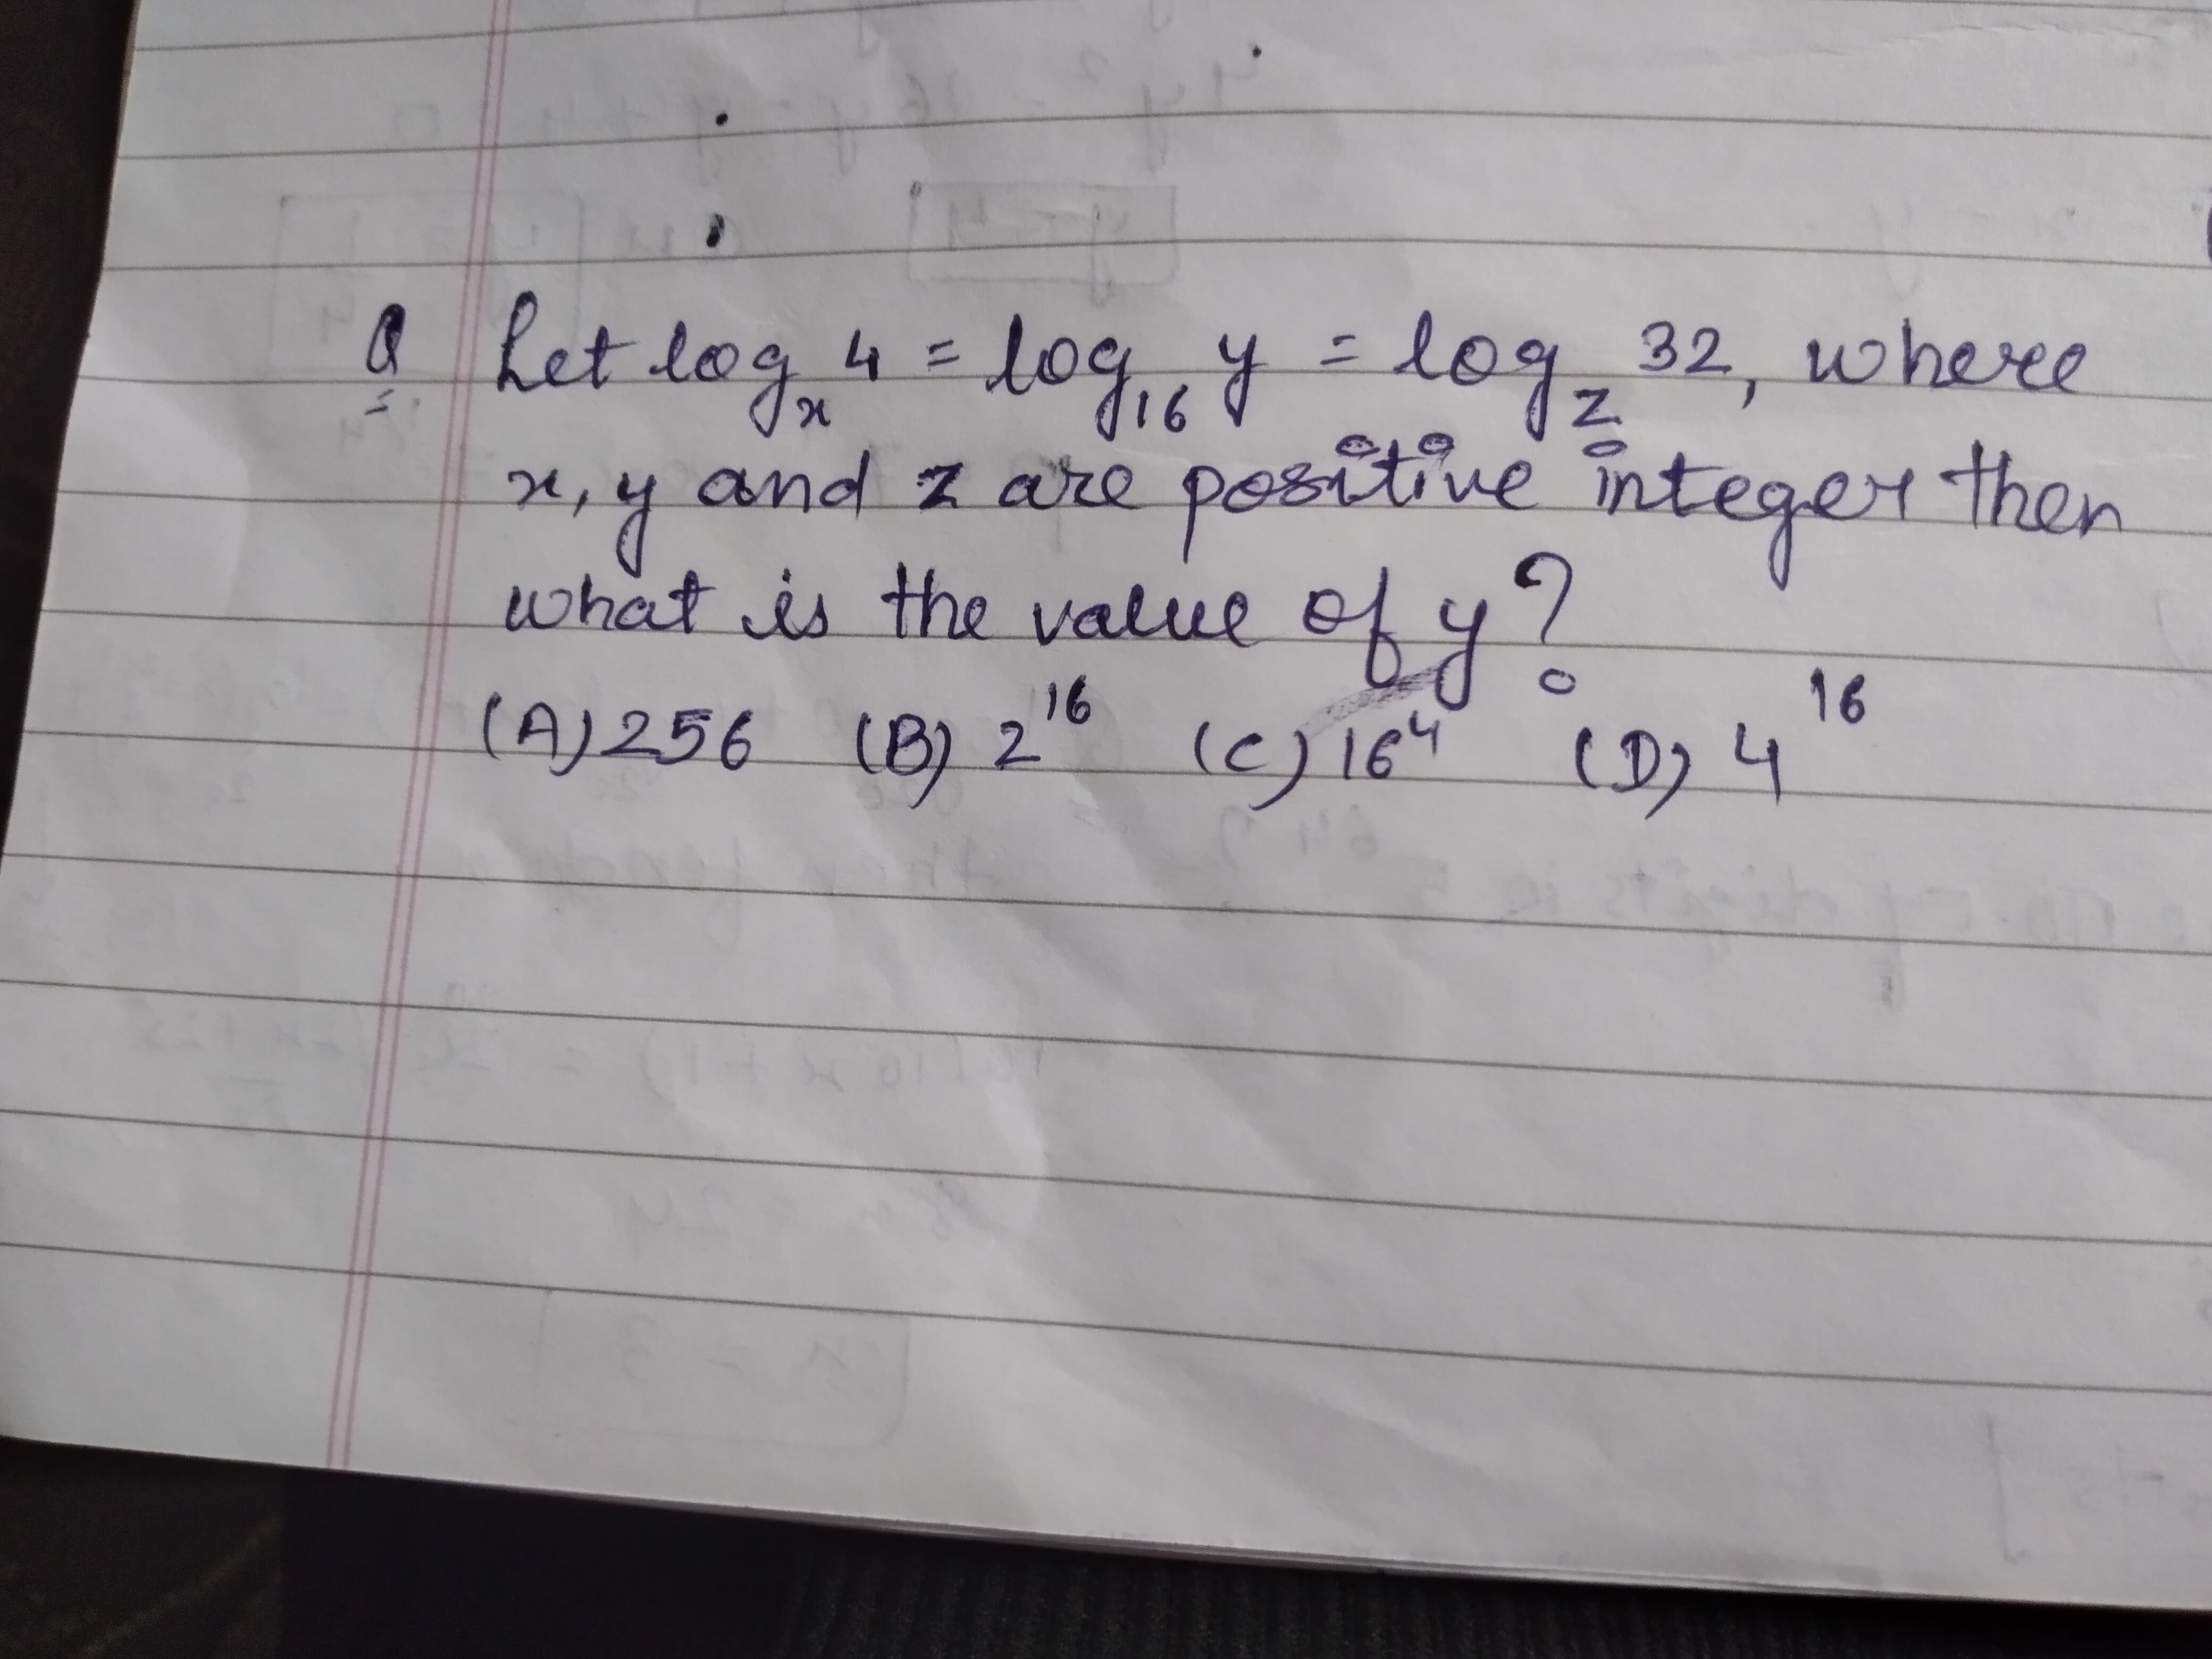 Q Let log_x 4 = log_16 y = log_z 32, where
x, y and z are positive integer then
what is the value of y?
(A) 256 (B) 2^16 (C) 16^4 (D) 4^16